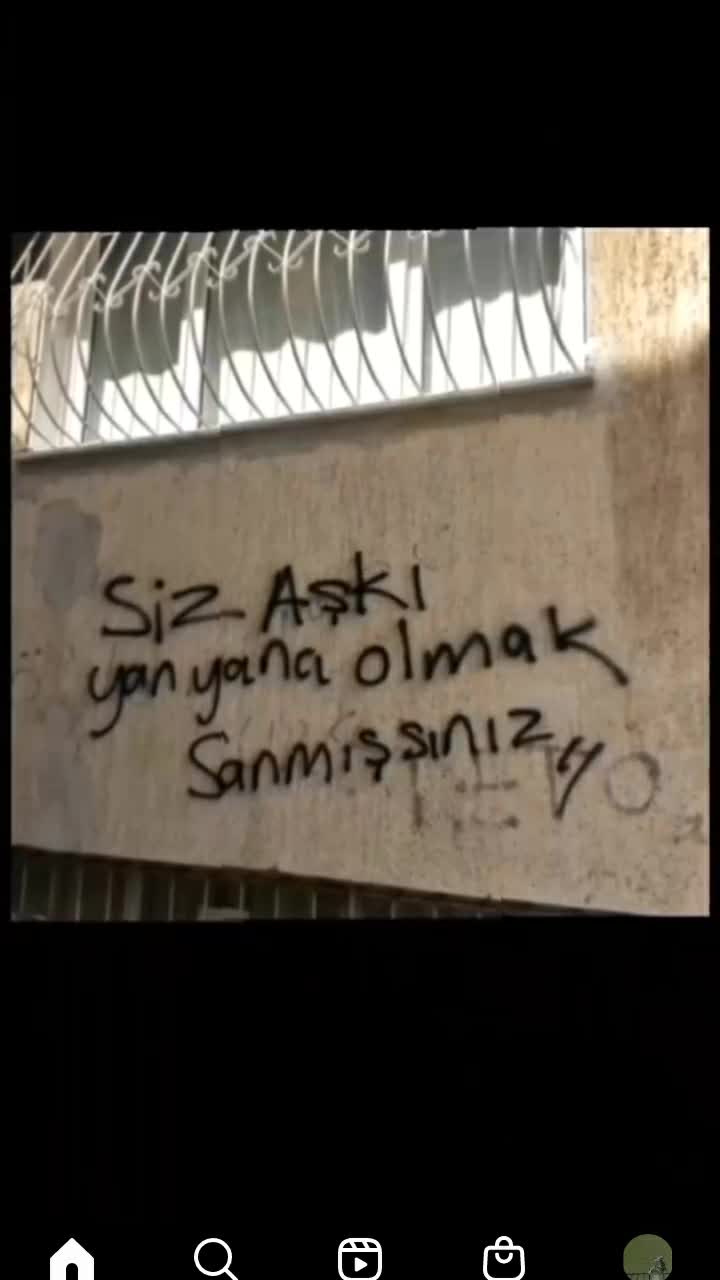 Siz Aşkı
yan yana olmak
Sanmışsınız